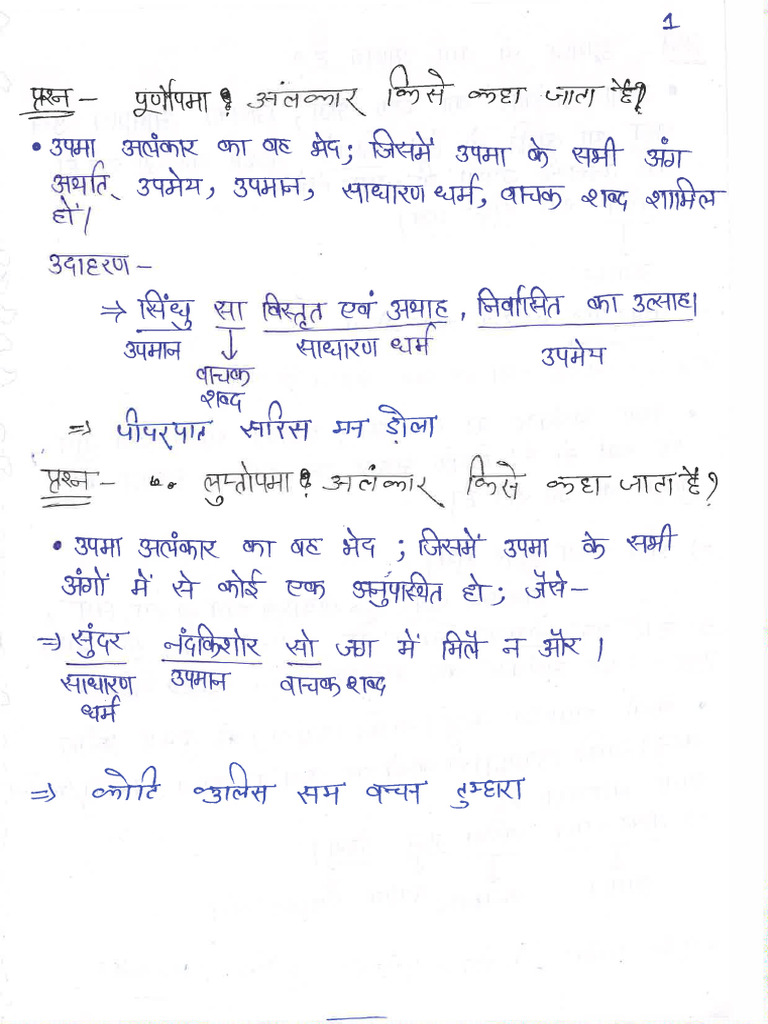 1
प्रश्न - पूर्णोपमा अलंकार किसे कहा जाता है?
• उपमा अलंकार का वह भेद; जिसमें उपमा के सभी अंग
अर्थात् उपमेय, उपमान, साधारण धर्म, वाचक शब्द शामिल
हों।
उदाहरण -
⇒ सिंधु सा विस्तृत एवं अथाह, निर्वासित का उत्साह।
उपमान ↓ साधारण धर्म उपमेय
वाचक
शब्द
⇒ पीपरपात सरिस मन डोला
प्रश्न - लुप्तोपमा अलंकार किसे कहा जाता है?
• उपमा अलंकार का वह भेद ; जिसमें उपमा के सभी
अंगों में से कोई एक अनुपस्थित हो ; जैसे -
⇒ सुंदर नंदकिशोर सो जग में मिलै न और ।
साधारण उपमान वाचक शब्द
धर्म
⇒ कोटि कुलिस सम वचन तुम्हारा